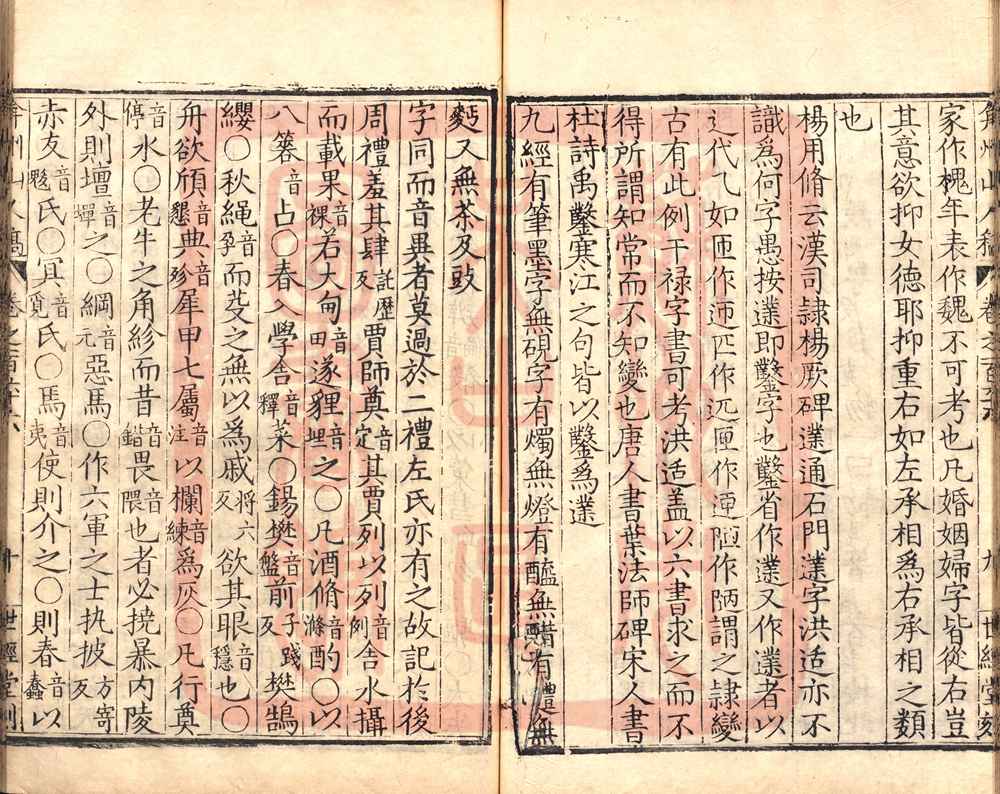 弇州山人稿 卷之一百六十六 九 世經堂刻
家作槐年表作魏不可考也凡婚姻婦字皆從右豈
其意欲抑女德耶抑重右如左承相為右承相之類
也
楊用脩云漢司隷楊厥碑䥘通石門䥘字洪适亦不
識為何字愚按䥘即鑿字也鑿省作䥘又作䥘者以
辶代乁如匝作迊匹作迊匣作迊陋作陋謂之隷變
古有此例干禄字書可考洪适盖以六書求之而不
得所謂知常而不知變也唐人書葉法師碑宋人書
杜詩禹鑿寒江之句皆以鑿為䥘
九經有筆墨字無硯字有燭無燈有醯無醋有醴無
麴又無茶及豉
字同而音異者莫過於二禮左氏亦有之故記於後
周禮羞其肆託歷反賈師奠音定其賈列以列音例舎水攝
而載果音裸若大甸音田遂貍音坦之〇凡酒脩音滌酌〇以
八簭音占〇春入學舎音釋菜〇錫樊音盤前子踐反樊鵠
纓〇秋繩音孕而芟之無以為戚將六反欲其眼音穩也〇
舟欲頎音懇典音殄犀甲七屬音注以欄音練為灰〇凡行奠
音停水〇老牛之角紾而昔音錯畏音隈也者必撓暴内陵
外則壇音墠之〇綱音元惡馬〇作六軍之士执披方寄反
赤友音魃氏〇冥音覓氏〇馬音夷使則介之〇則春音蠢以
弇州山人稿 卷之一百六十六 十 世經堂刻